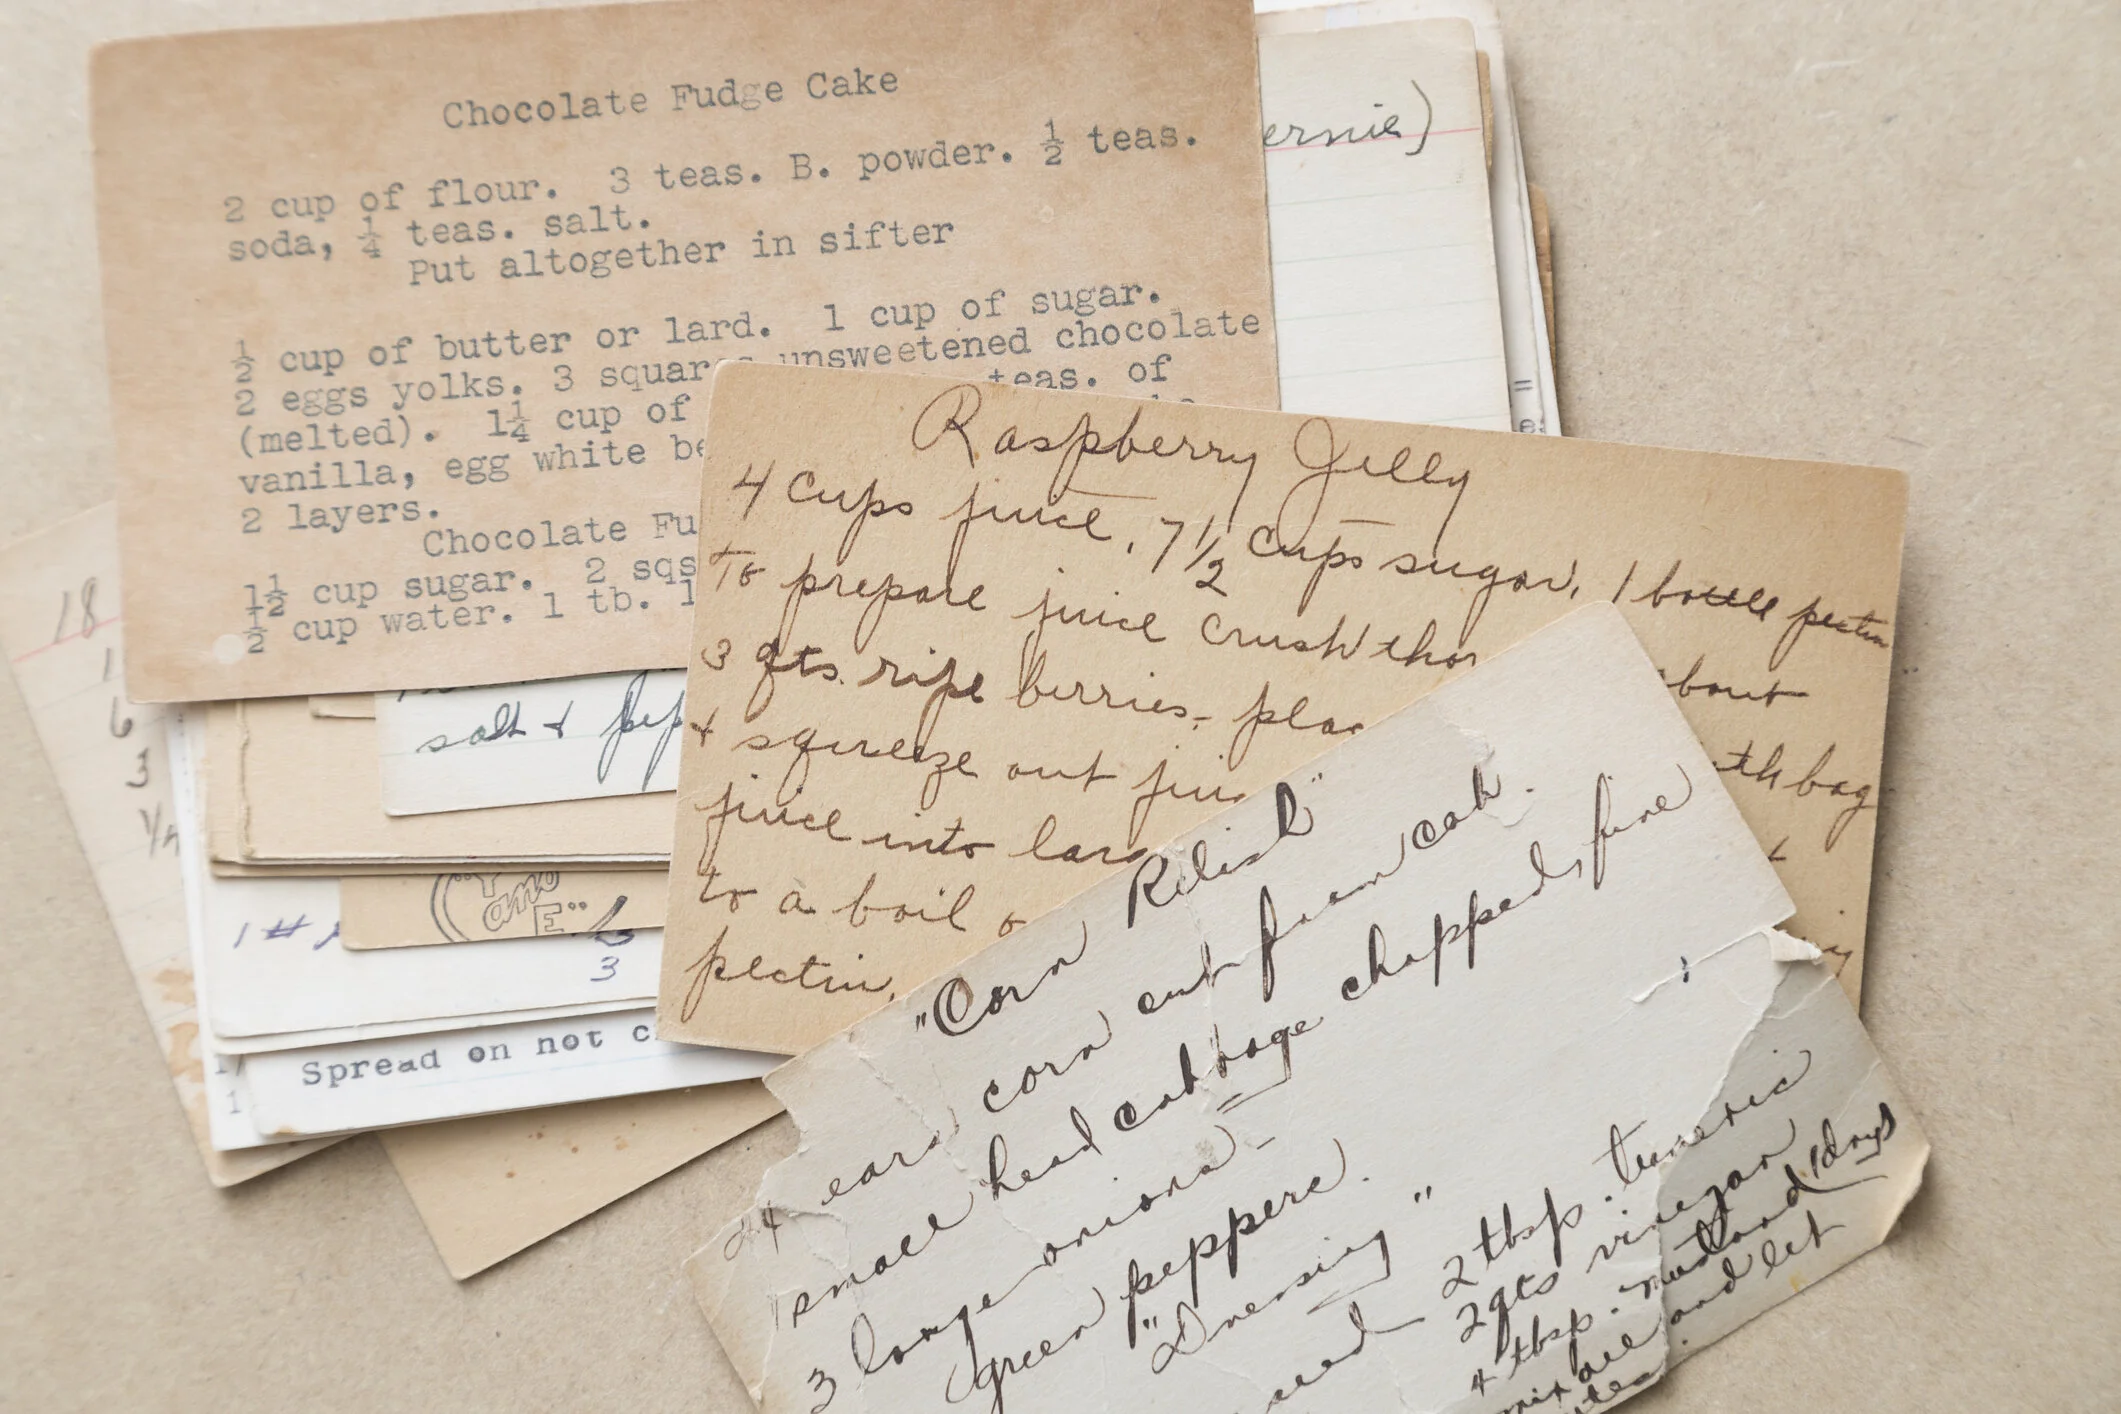 Chocolate Fudge Cake
2 cup of flour. 3 teas. B. powder. ½ teas.
soda, ¼ teas. salt.
Put altogether in sifter
½ cup of butter or lard. 1 cup of sugar.
2 eggs yolks. 3 squar unsweetened chocolate
(melted). 1¼ cup of teas. of
vanilla, egg white be
2 layers.
Chocolate Fu
1½ cup sugar. 2 sqs
½ cup water. 1 tb. 1
ernie)
Raspberry Jelly
4 cups juice, 7½ cups sugar, 1 bottle pectin
To prepare juice crush tho bout
3 qts. ripe berries, pla th bag
+ squeeze out jui
juice into lar
to a boil o
pectin.
"Corn Relish"
24 ears corn cut from cob.
1 small head cabbage chopped, fine
3 large onions
green peppers.
"Dressing"
seed 2 tbsp. tumeric
2 qts vinegar
4 tbsp. mustard, 1 drys
mix all and let
18
1
6
3
1/4
salt + pep
"Y
and
E"
1 #
3
Spread on not c
1